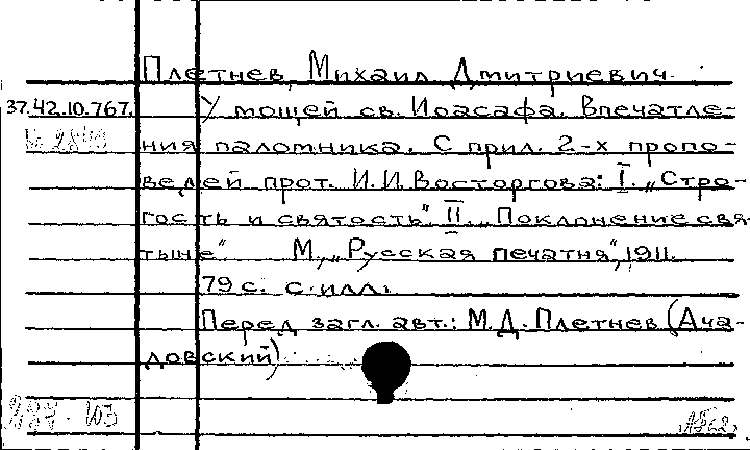 Плетнев, Михаил Дмитриевич.
37.42.10.767. У мощей св. Иоасафа. Впечатле-
ния паломника. С прил. 2-х пропо-
ведей прот. И.И. Восторгова: I. „Стро-
гость и святость" II. „Поклонение свя-
тыне" М., „Русская печатня", 1911.
79 с. с илл.
Перед загл. авт.: М.Д. Плетнев (Ача-
довский)